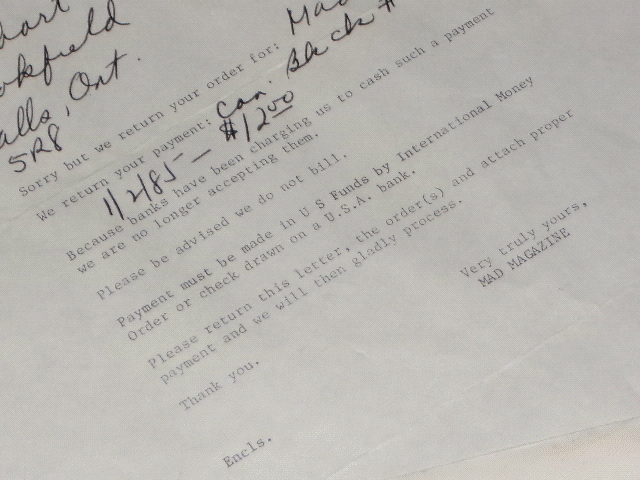 Ont.
5R8
Sorry but we return your order for: Mad
We return your payment: Can. Black #
11/2/85 — $12.00
Because banks have been charging us to cash such a payment
we are no longer accepting them.
Please be advised we do not bill.
Payment must be made in U S Funds by International Money
Order or check drawn on a U.S.A. bank.
Please return this letter, the order(s) and attach proper
payment and we will then gladly process.
Very truly yours,
MAD MAGAZINE
Thank you.
Encls.